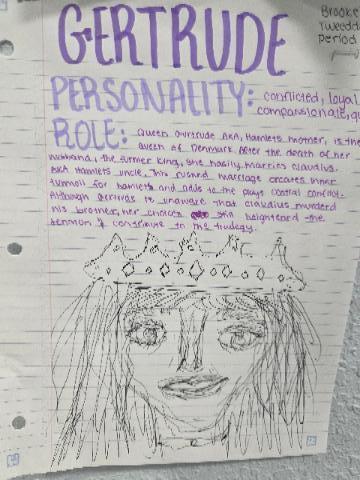 GERTRUDE
Brooke
Tweedd
Period
PERSONALITY: conflicted, loyal
compansionate, qu
ROLE: Queen Gertrude AKA Hamlets mother, is the
queen of Denmark. After the death of her
husband, the former king, she hasily marries claudius.
AKA Hamlets uncle. This rushed marriage creates inner
turmoil for hamlets and adds to the plays central conflict.
Although Gertrude is unaware that claudius murderd
his brother, her choices still heightened the
tension & contribute to the tradegy.